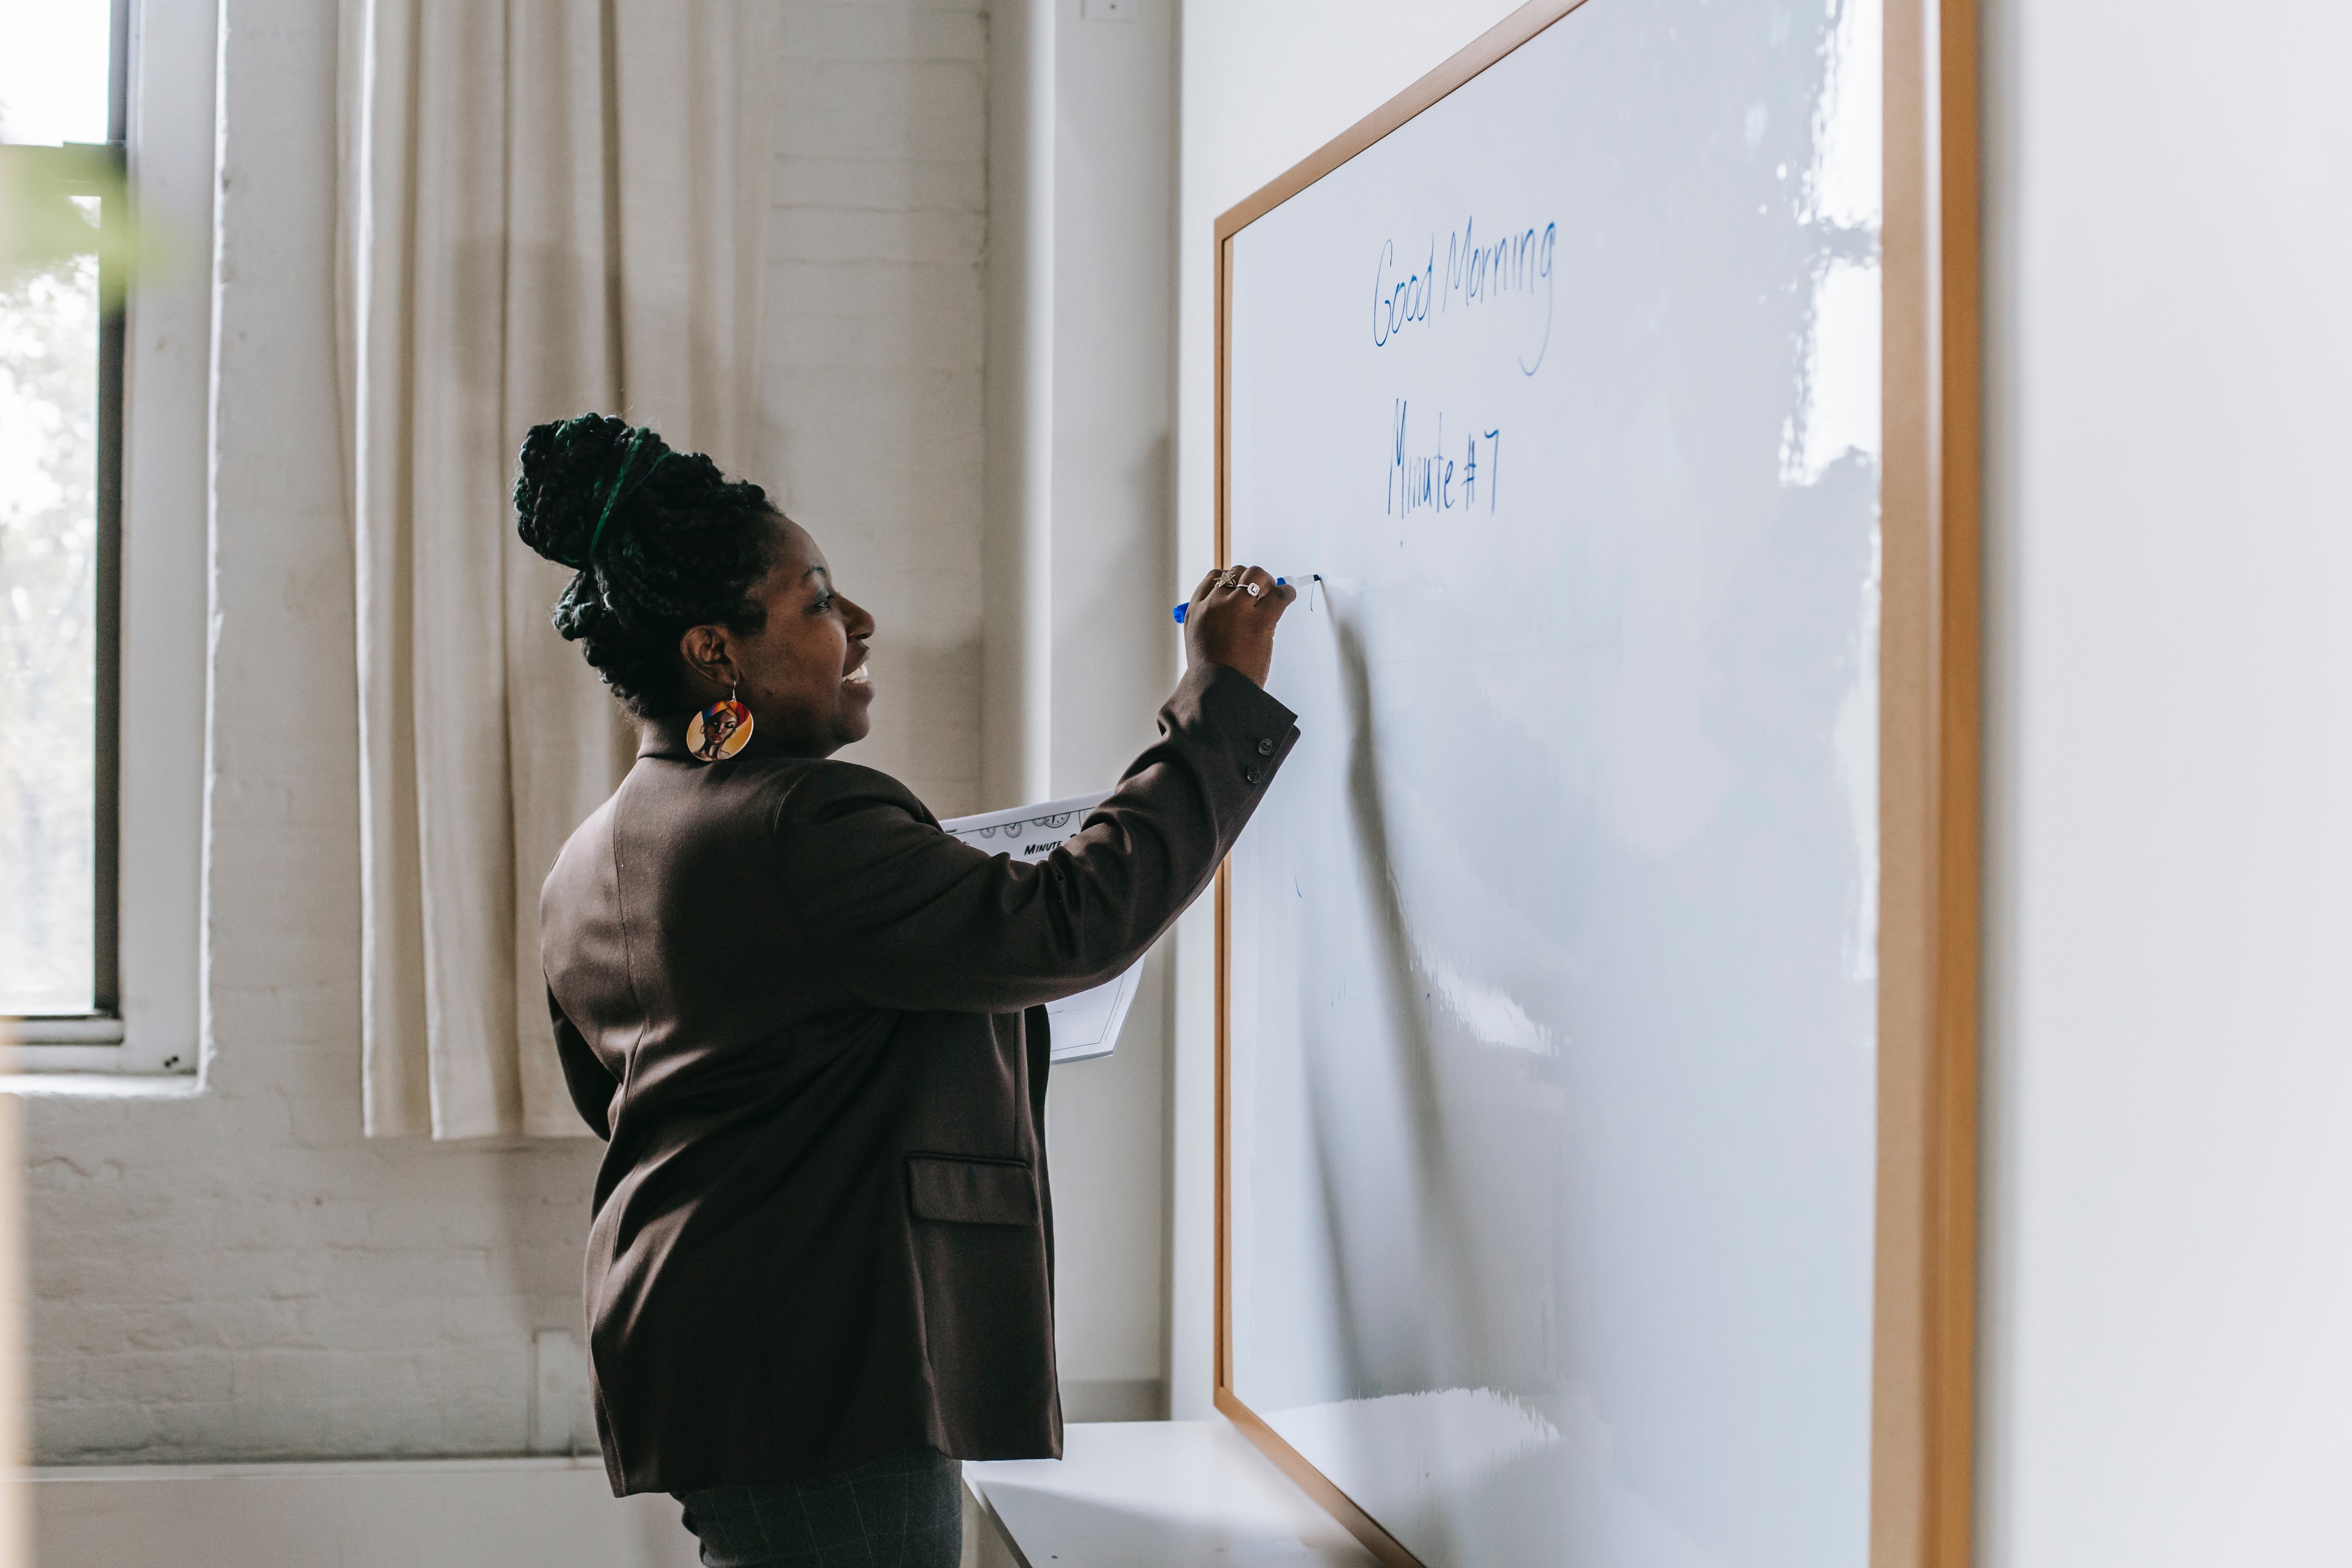 Good Morning
Minute #7
MINUTE